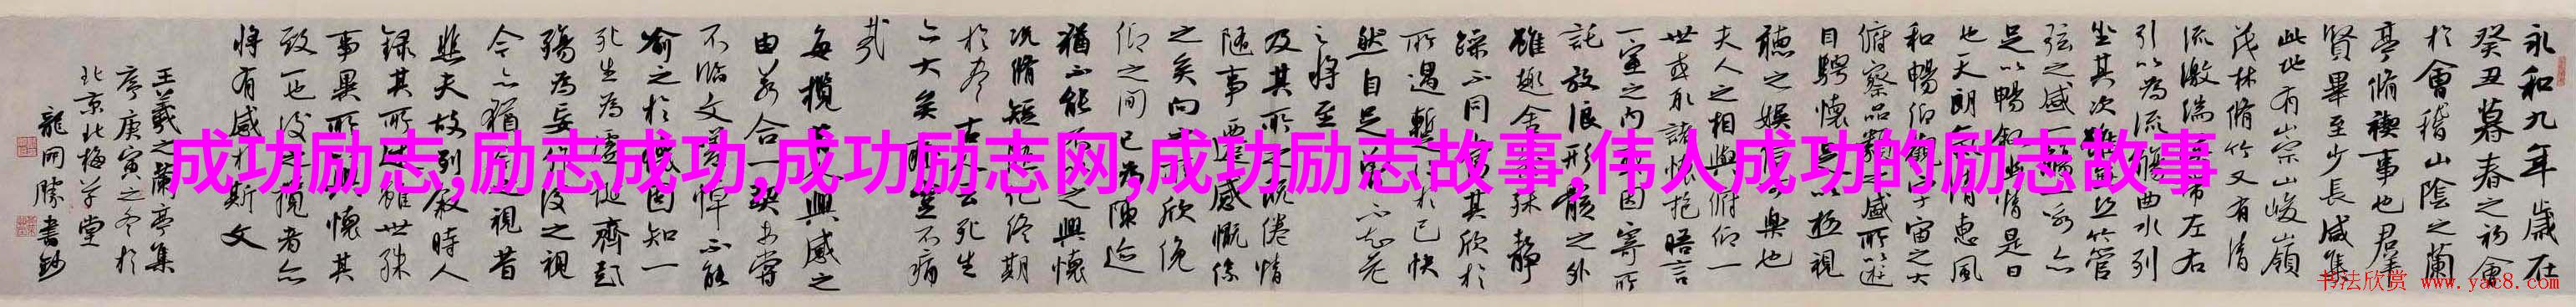 成功励志,励志成功,成功励志网,成功励志故事,伟人成功的励志故事
永和九年歲在
癸丑暮春之初會
於會稽山陰之蘭
亭脩禊事也羣
賢畢至少長咸集
此地有崇山峻嶺
茂林脩竹又有清
流激湍帶左右
引以為流觴曲水列
坐其次雖無絲竹管
弦之盛一觴一詠亦
足以暢敘幽情是日
也天朗氣清惠風
和暢仰觀宇宙之大
俯察品類之盛所以遊
目騁懷足以極視
聽之娛信可樂也
夫人之相與俯仰一
世或取諸懷抱晤言
一室之內或因寄所
託放浪形骸之外
雖趣舍萬殊靜
躁不同當其欣於
所遇暫得於己快
然自足曾不知老
之將至
及其所之既倦情
隨事遷感慨係
之矣向之所欣俛
仰之間已為陳迹
猶不能不以之興懷
況脩短隨化終期
於盡古人云死生
亦大矣豈不痛
哉
每攬昔人興感之
由若合一契未嘗
不臨文嗟悼不能
喻之於懷固知一
死生為虛誕齊彭
殤為妄作後之視
今亦猶今之視昔
悲夫故列敘時人
錄其所述雖世殊
事異所以興懷其
致一也後之攬者亦
將有感於斯文
王羲之蘭亭集
序庚寅之冬於
北京北梅草堂
龍開勝書鈔
书法欣赏 www.yac8.com